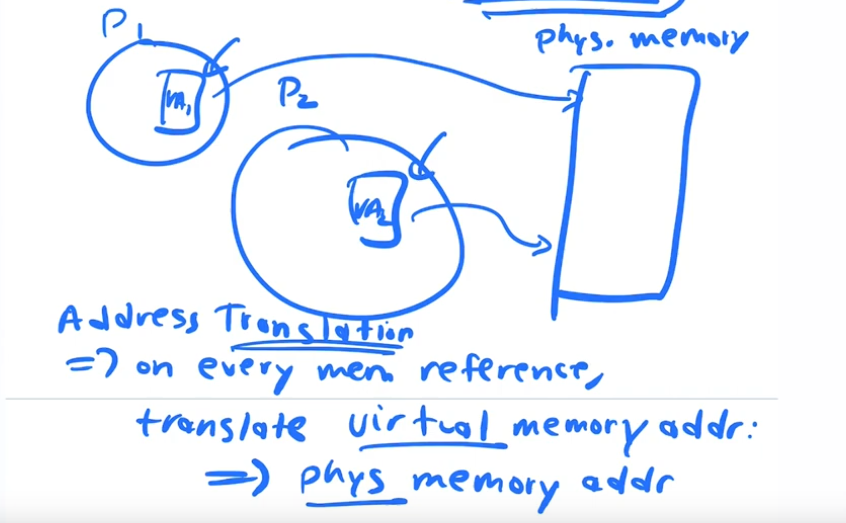 P1
phys. memory
VA1
P2
VA2
Address Translation
=> on every mem reference,
translate virtual memory addr:
=> phys memory addr